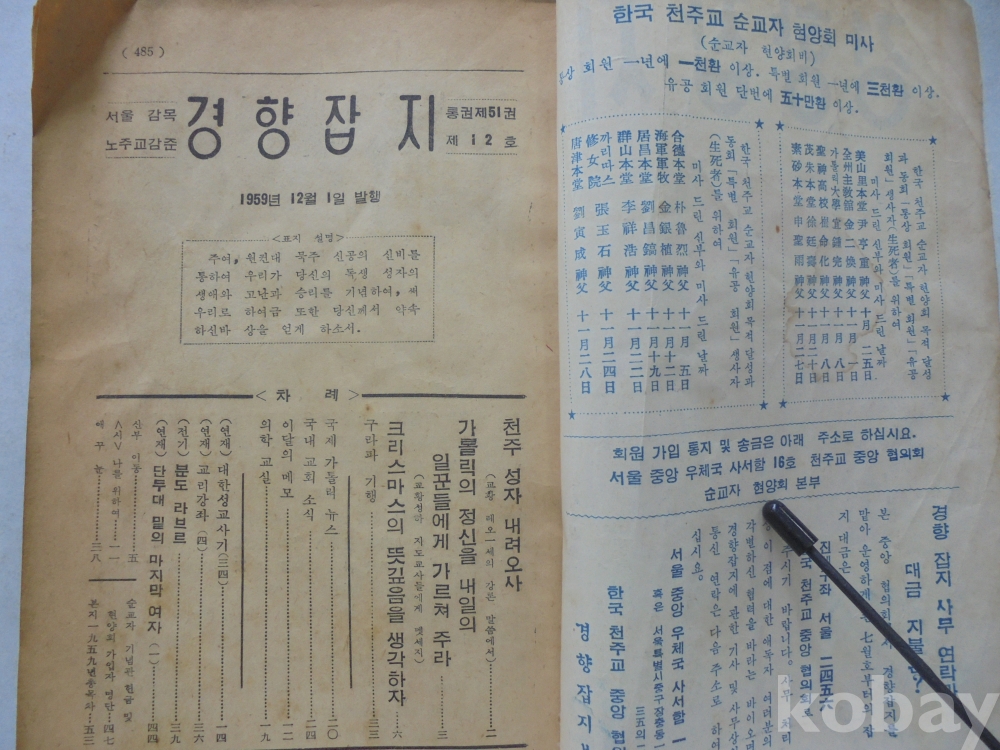 ( 485 )
서울 감목
노주교감준
경향잡지
통권제51권
제 12 호
1959년 12월 1일 발행
<표지 설명>
주여, 원컨대 묵주 신공의 신비를
통하여 우리가 당신의 독생 성자의
생애와 고난과 승리를 기념하여, 써
우리로 하여금 또한 당신께서 약속
하신바 상을 얻게 하소서.
< 차 례 >
천주 성자 내려오사
(교황 레오一세의 강론 말씀에서)……二
가톨릭의 정신을 내일의
일꾼들에게 가르쳐 주라
(교황성하 지도교사들에게 멧세지)……三
크리스마스의 뜻깊음을 생각하자……六
구라파 기행……三三
국제 가톨릭 뉴스……二〇
국내 교회 소식
이달의 메모
의학 교실
(연재) 대한성교사기(三四)……一四
(연재) 교리강좌 (四)……三六
(전기) 분도 라브르……三九
(연재) 단두대 밑의 마지막 여자 (一)……四四
신부 이동……五
<시> 나를 위하여……一一
메 꾸 눈……三八
순교자 기념관 헌금 및
현양회 가입자 명단……四七
본지 一九五九년총목차……五三
한국 천주교 순교자 현양회 미사
(순교자 현양회비)
통상 회원 一년에 一천환 이상. 특별 회원 一년에 三천환 이상.
유공 회원 단번에 五十만환 이상.
한국 천주교 순교자 현양회 목적 달성
과 동회 「통상 회원」 「특별 회원」 「유공
회원」 생사자(生死者)를 위하여
미사 드린 신부와 미사 드린 날짜
美山里本堂 尹亨重神父 十月 二五日
全州主敎舘 金二煥神父 十一月 一日
가톨릭大學 堂鍾完神父 十一月 八日
聖神高校 崔命化神父 十一月 八日
茂朱本堂 徐廷壽神父 十一月二十日
素砂本堂 申聖雨神父 十一月二七日
한국 천주교 순교자 현양회 목적 달성과
동회 「특별 회원」 「유공 회원」 생사자
(生死者)를 위하여
미사 드린 신부와 미사 드린 날짜
合德本堂 朴魯烈神父 十一月 五日
海軍軍牧 金銀植神父 十一月十二日
居昌本堂 劉昌鎬神父 十一月十九日
群山本堂 李祥浩神父 十一月二二日
까리따스修女院 張玉石神父 十一月二四日
唐津本堂 劉寅成神父 十一月二八日
회원 가입 통지 및 송금은 아래 주소로 하십시요.
서울 중앙 우체국 사서함 16호 천주교 중앙 협의회
순교자 현양회 본부
경향 잡지 사무 연락
대금 지불은?
본 중앙 협의회서 경향잡지를
맡아 운영하게 七월호부터의 잡
지 대금은
진체구좌 서울 二四五六
한국 천주교 중앙 협의회로
주시기 바랍니다.
이 점에 대한 애독자 여러분의
각별하신 협력을 바라는 바이오며
경향잡지에 관한 기사 및 사무상
통신 연락은 다음 주소로 하여
십시요.
서울 중앙 우체국 사서함 一
혹은 서울특별시중구장충동一
한국 천주교 중앙 협
경향잡지
kobay